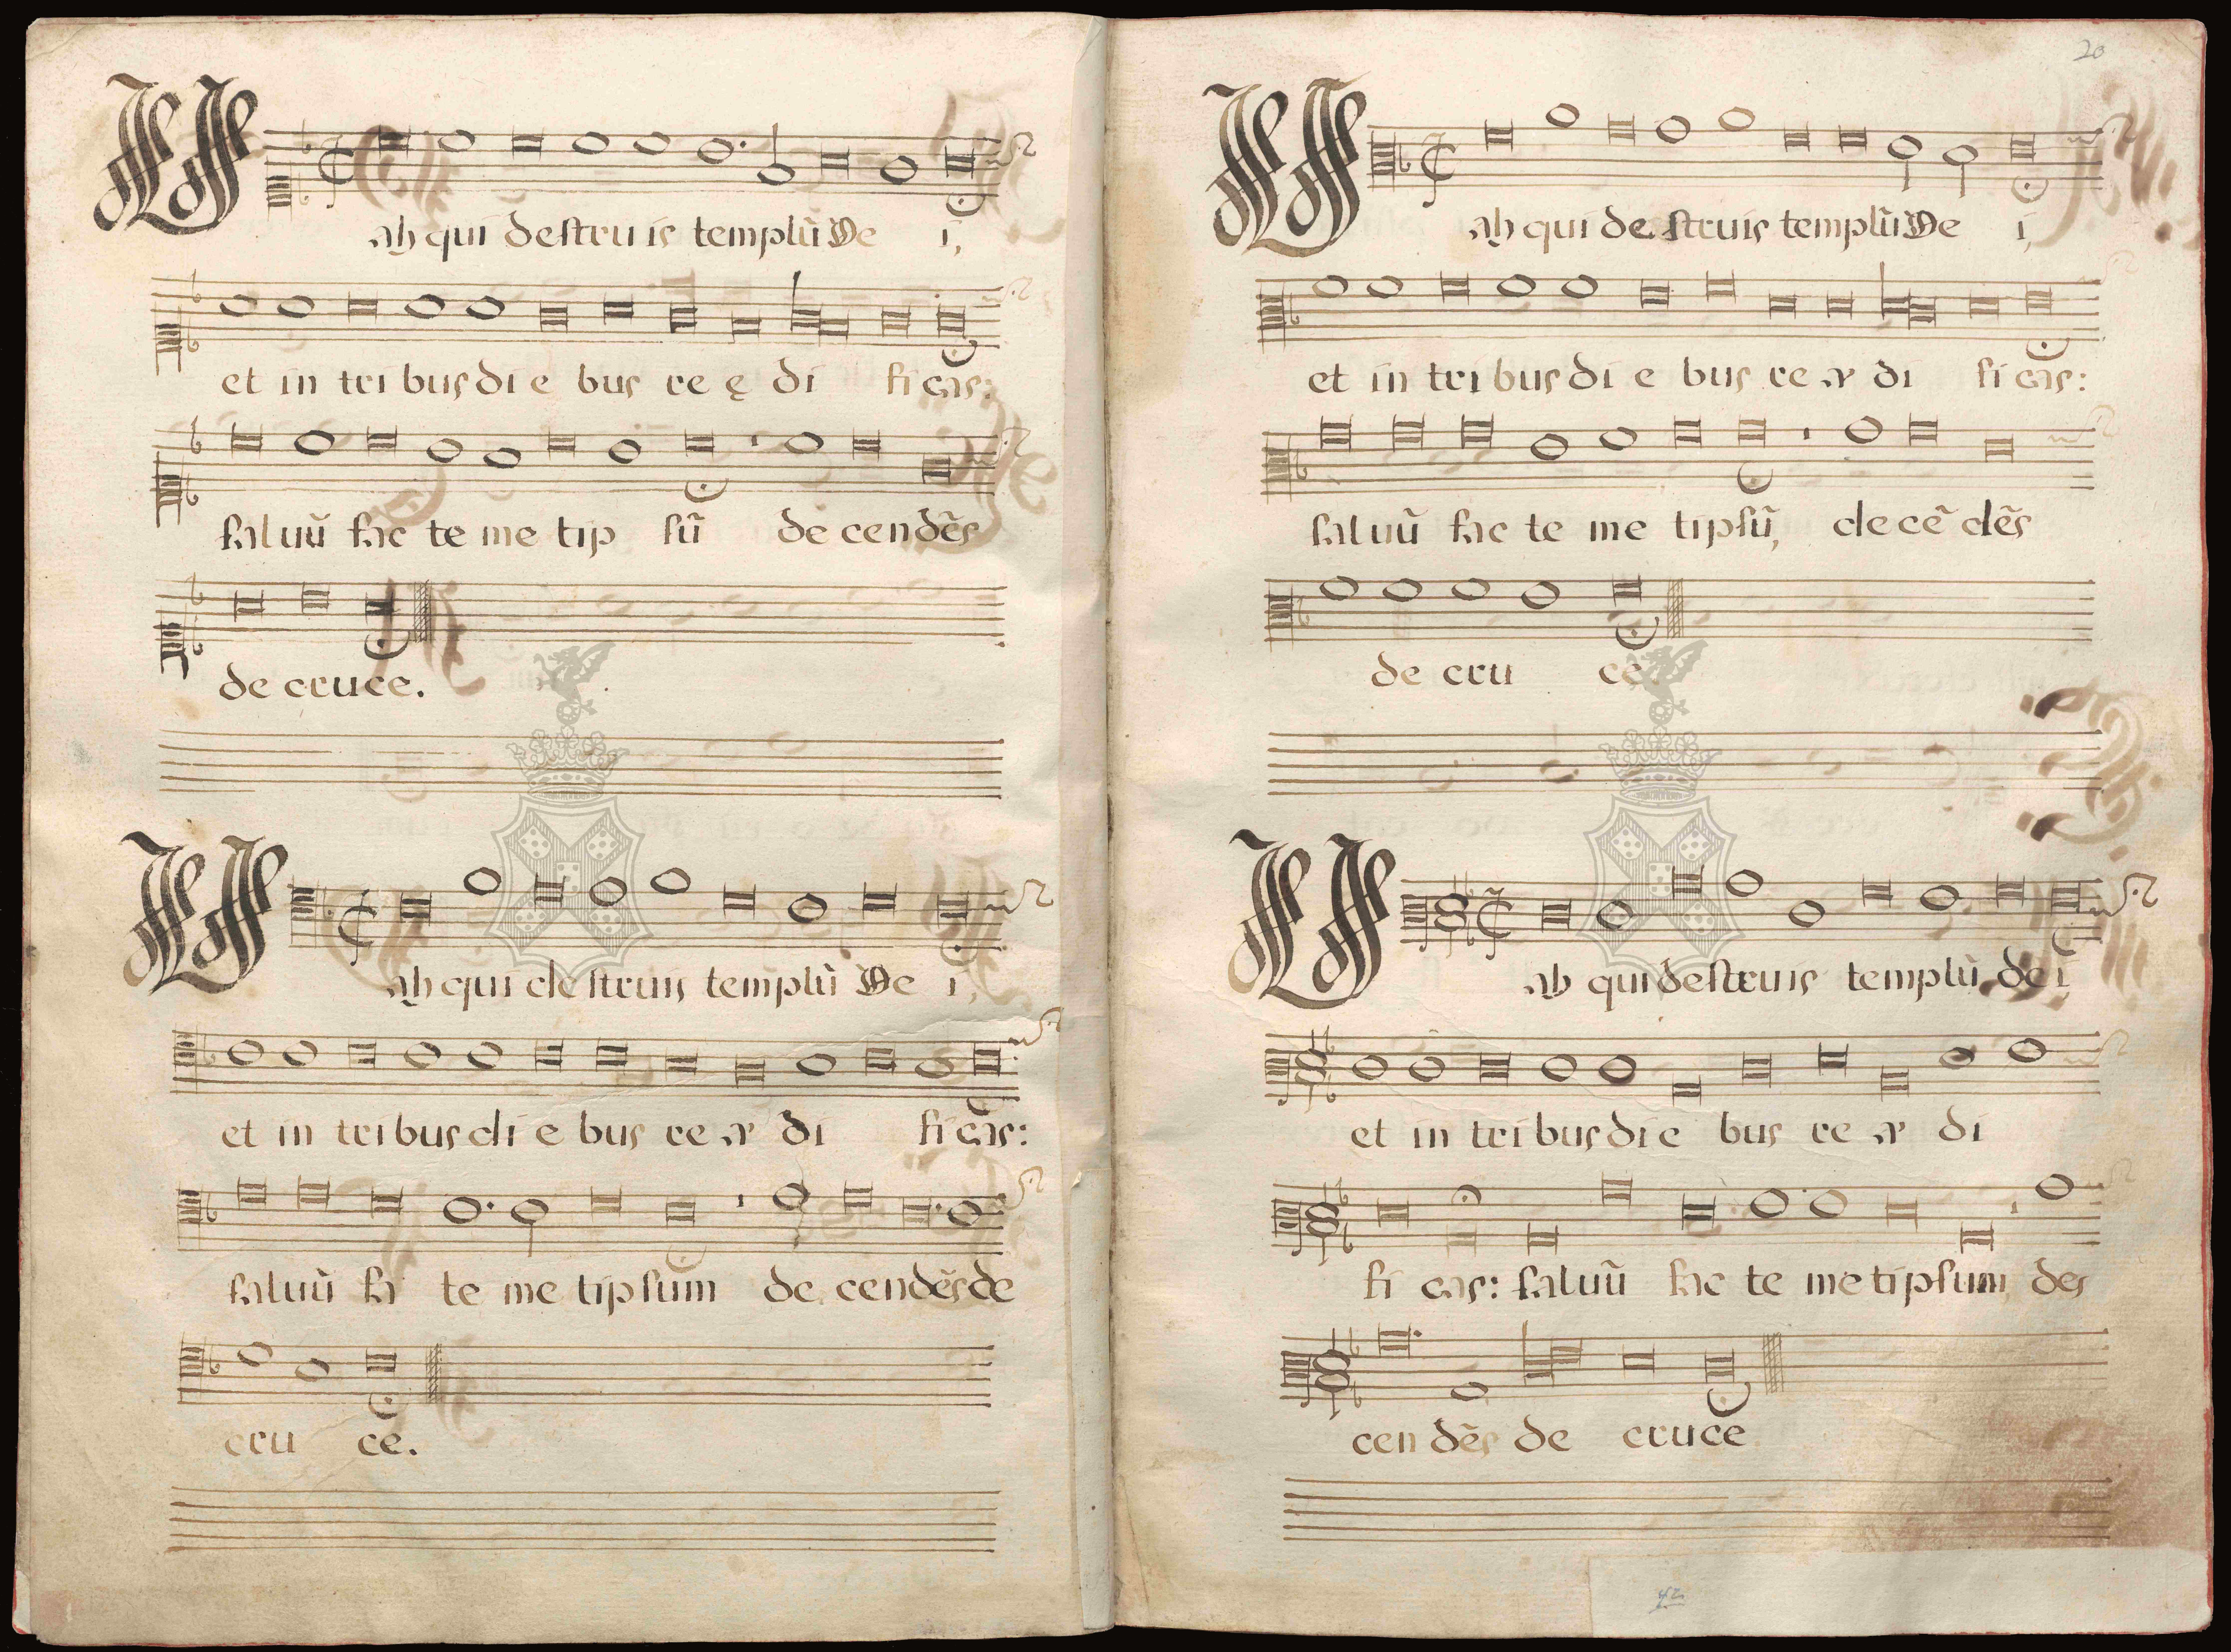 Vah qui destruis templũ De i,
et in tri bus di e bus re ę di fi cas:
saluũ fac te me tip sũ de cendẽs
de cruce.
Vah qui destruis templũ De i,
et in tri bus di e bus re æ di fi cas:
saluũ fa te me tipsum de cendẽs de
cru ce.
20
Vah qui de struis templũ De i,
et in tri bus di e bus re æ di fi cas:
saluũ fac te me tipsũ, de cẽ dẽs
de cru ce
Vah qui destruis templũ de i
et in tri bus di e bus re æ di
fi cas: saluũ fac te me tipsum des
cen dẽs de cruce
42